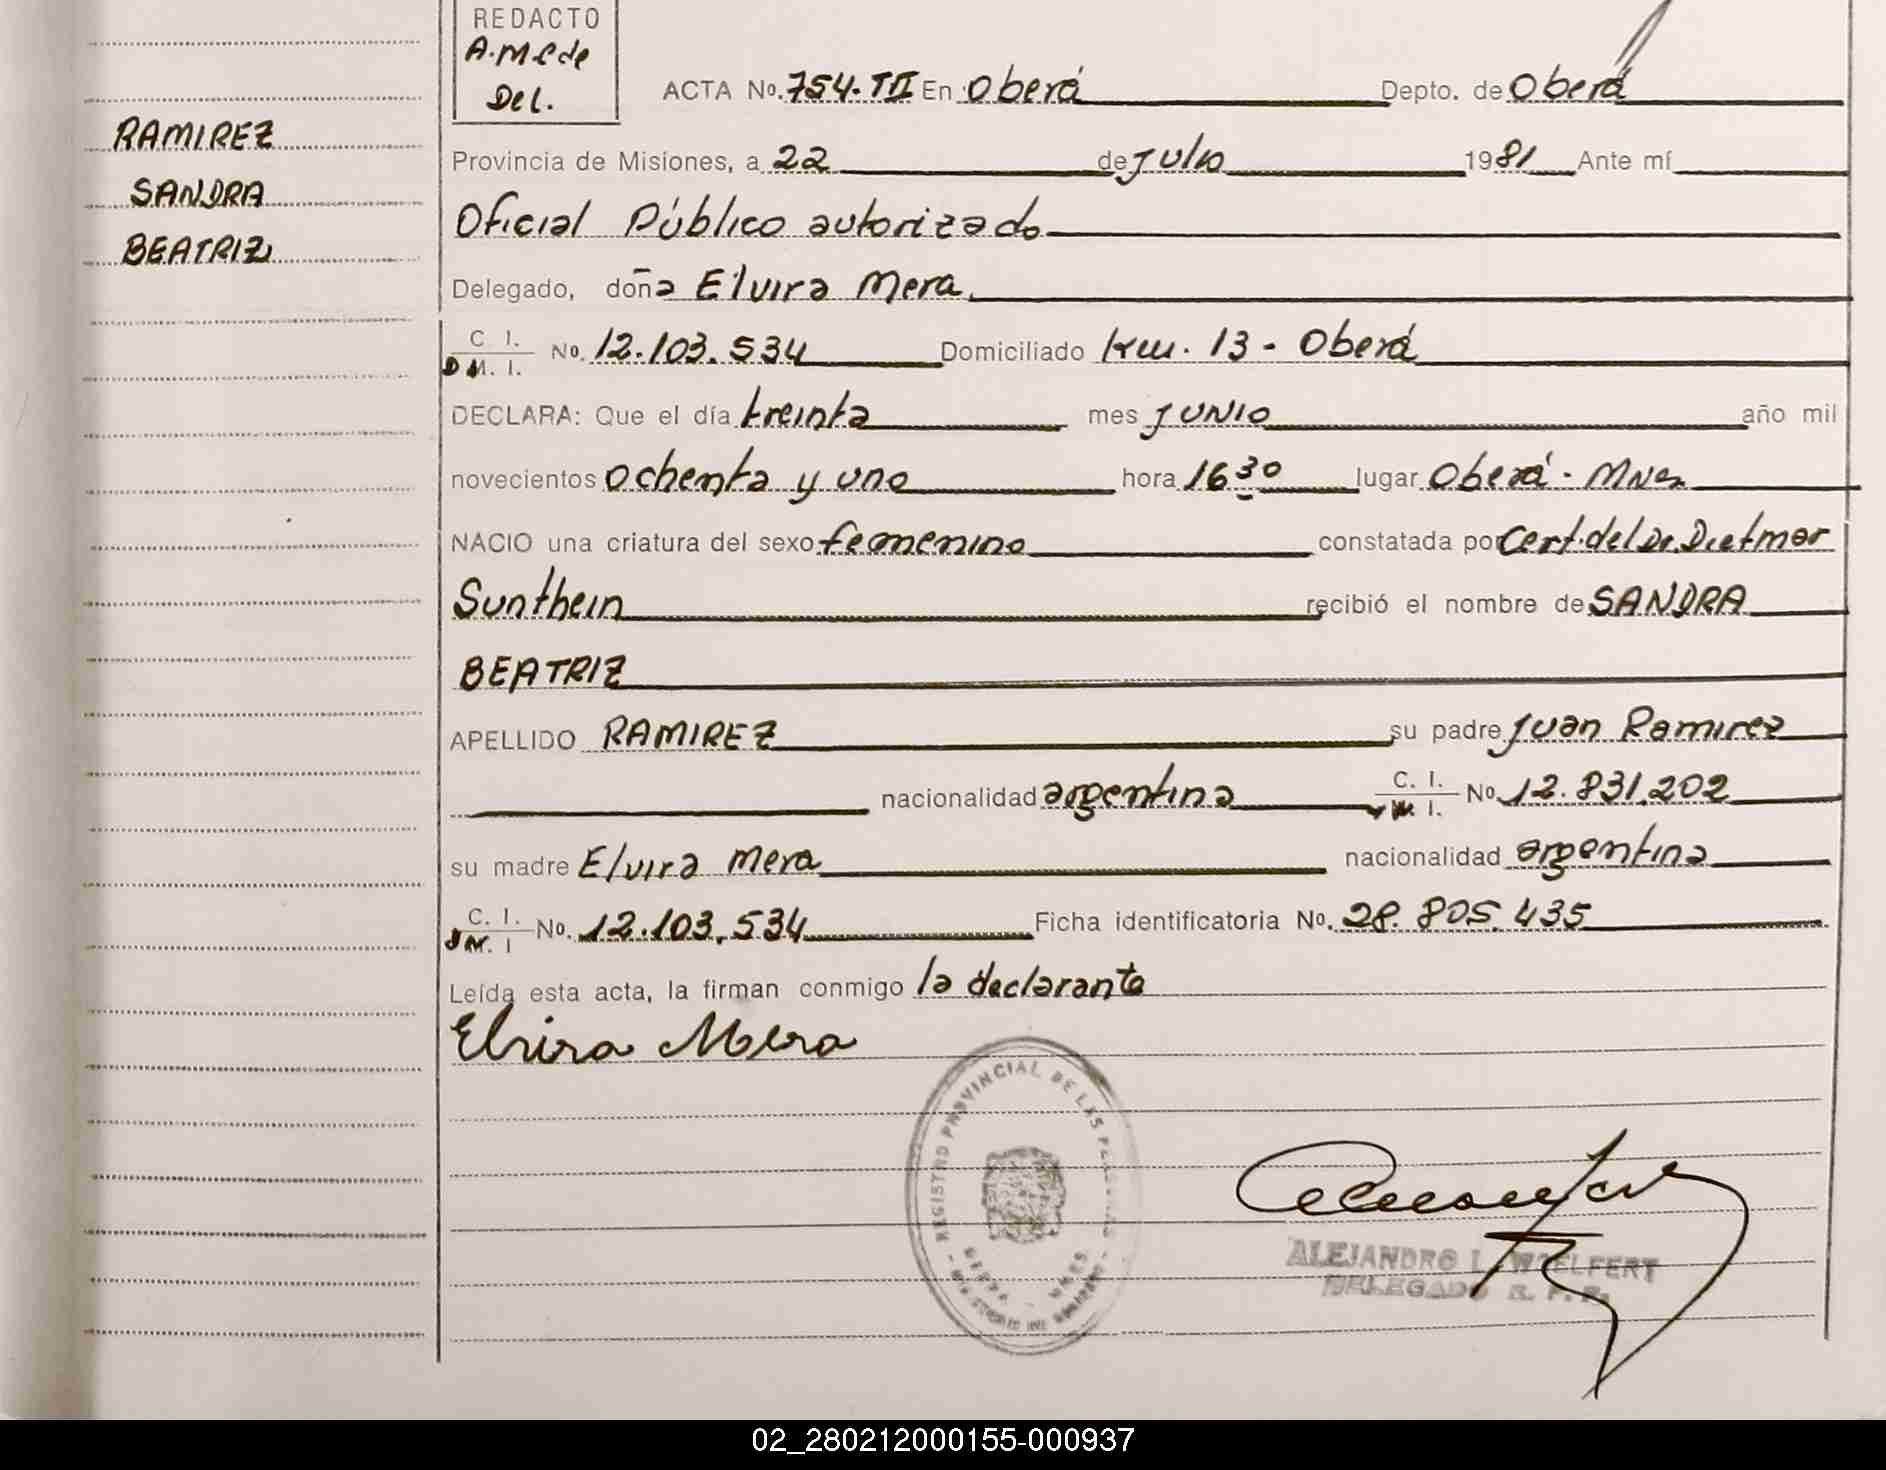 REDACTO
A.M.C de
Del.
RAMIREZ
SANDRA
BEATRIZ
ACTA No. 754. TII En Oberá Depto. de Oberá
Provincia de Misiones, a 22 de Julio 1981 Ante mí
Oficial Público autorizado
Delegado, doña Elvira Mera
C. I. D M. I. No. 12.103.534 Domiciliado Km. 13 - Oberá
DECLARA: Que el día treinta mes JUNIO año mil
novecientos ochenta y uno hora 16 30 lugar Oberá - Mnes
NACIO una criatura del sexo femenino constatada por Cert. del Dr. Dietmar
Sunthein recibió el nombre de SANDRA
BEATRIZ
APELLIDO RAMIREZ su padre Juan Ramirez
nacionalidad argentina C. I. M. I. No. 12.831.202
su madre Elvira Mera nacionalidad argentina
C. I. M. I No. 12.103.534 Ficha identificatoria No. 28.805.435
Leída esta acta, la firman conmigo la declarante
Elvira Mera
REGISTRO PROVINCIAL DE LAS PERSONAS
ALEJANDRO L. WOELFERT
DELEGADO R. P. P.
02_280212000155-000937